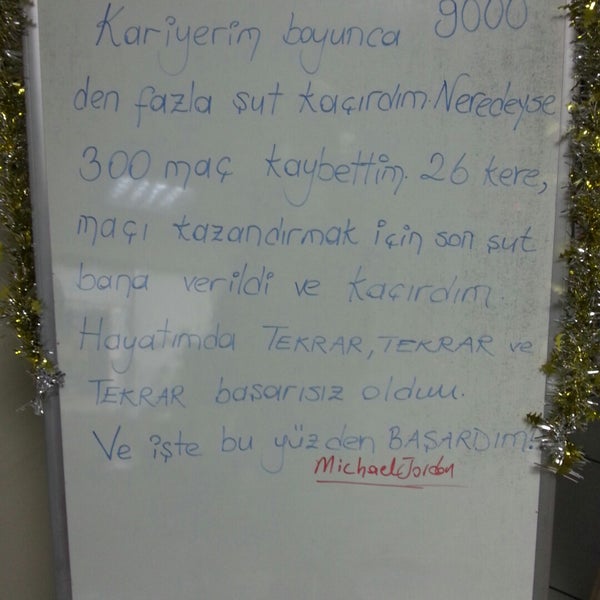 Kariyerim boyunca 9000
den fazla şut kaçırdım. Neredeyse
300 maç kaybettim. 26 kere,
maçı kazandırmak için son şut
bana verildi ve kaçırdım.
Hayatımda TEKRAR, TEKRAR ve
TEKRAR başarısız oldum.
Ve işte bu yüzden BAŞARDIM!
Michael Jordan